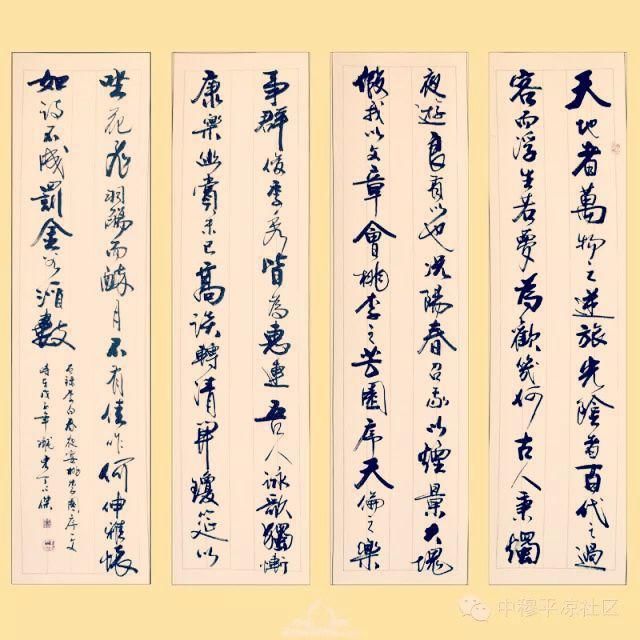 天地者萬物之逆旅光陰者百代之過
客而浮生若夢為歡幾何古人秉燭
夜遊良有以也況陽春召我以煙景大塊
假我以文章會桃李之芳園序天倫之樂
事群俊季秀皆為惠連吾人詠歌獨慚
康樂幽賞未已高談轉清開瓊筵以
坐花飛羽觴而醉月不有佳作何伸雅懷
如詩不成罰金谷酒數
李白春夜宴桃李園序
中穆平凉社区